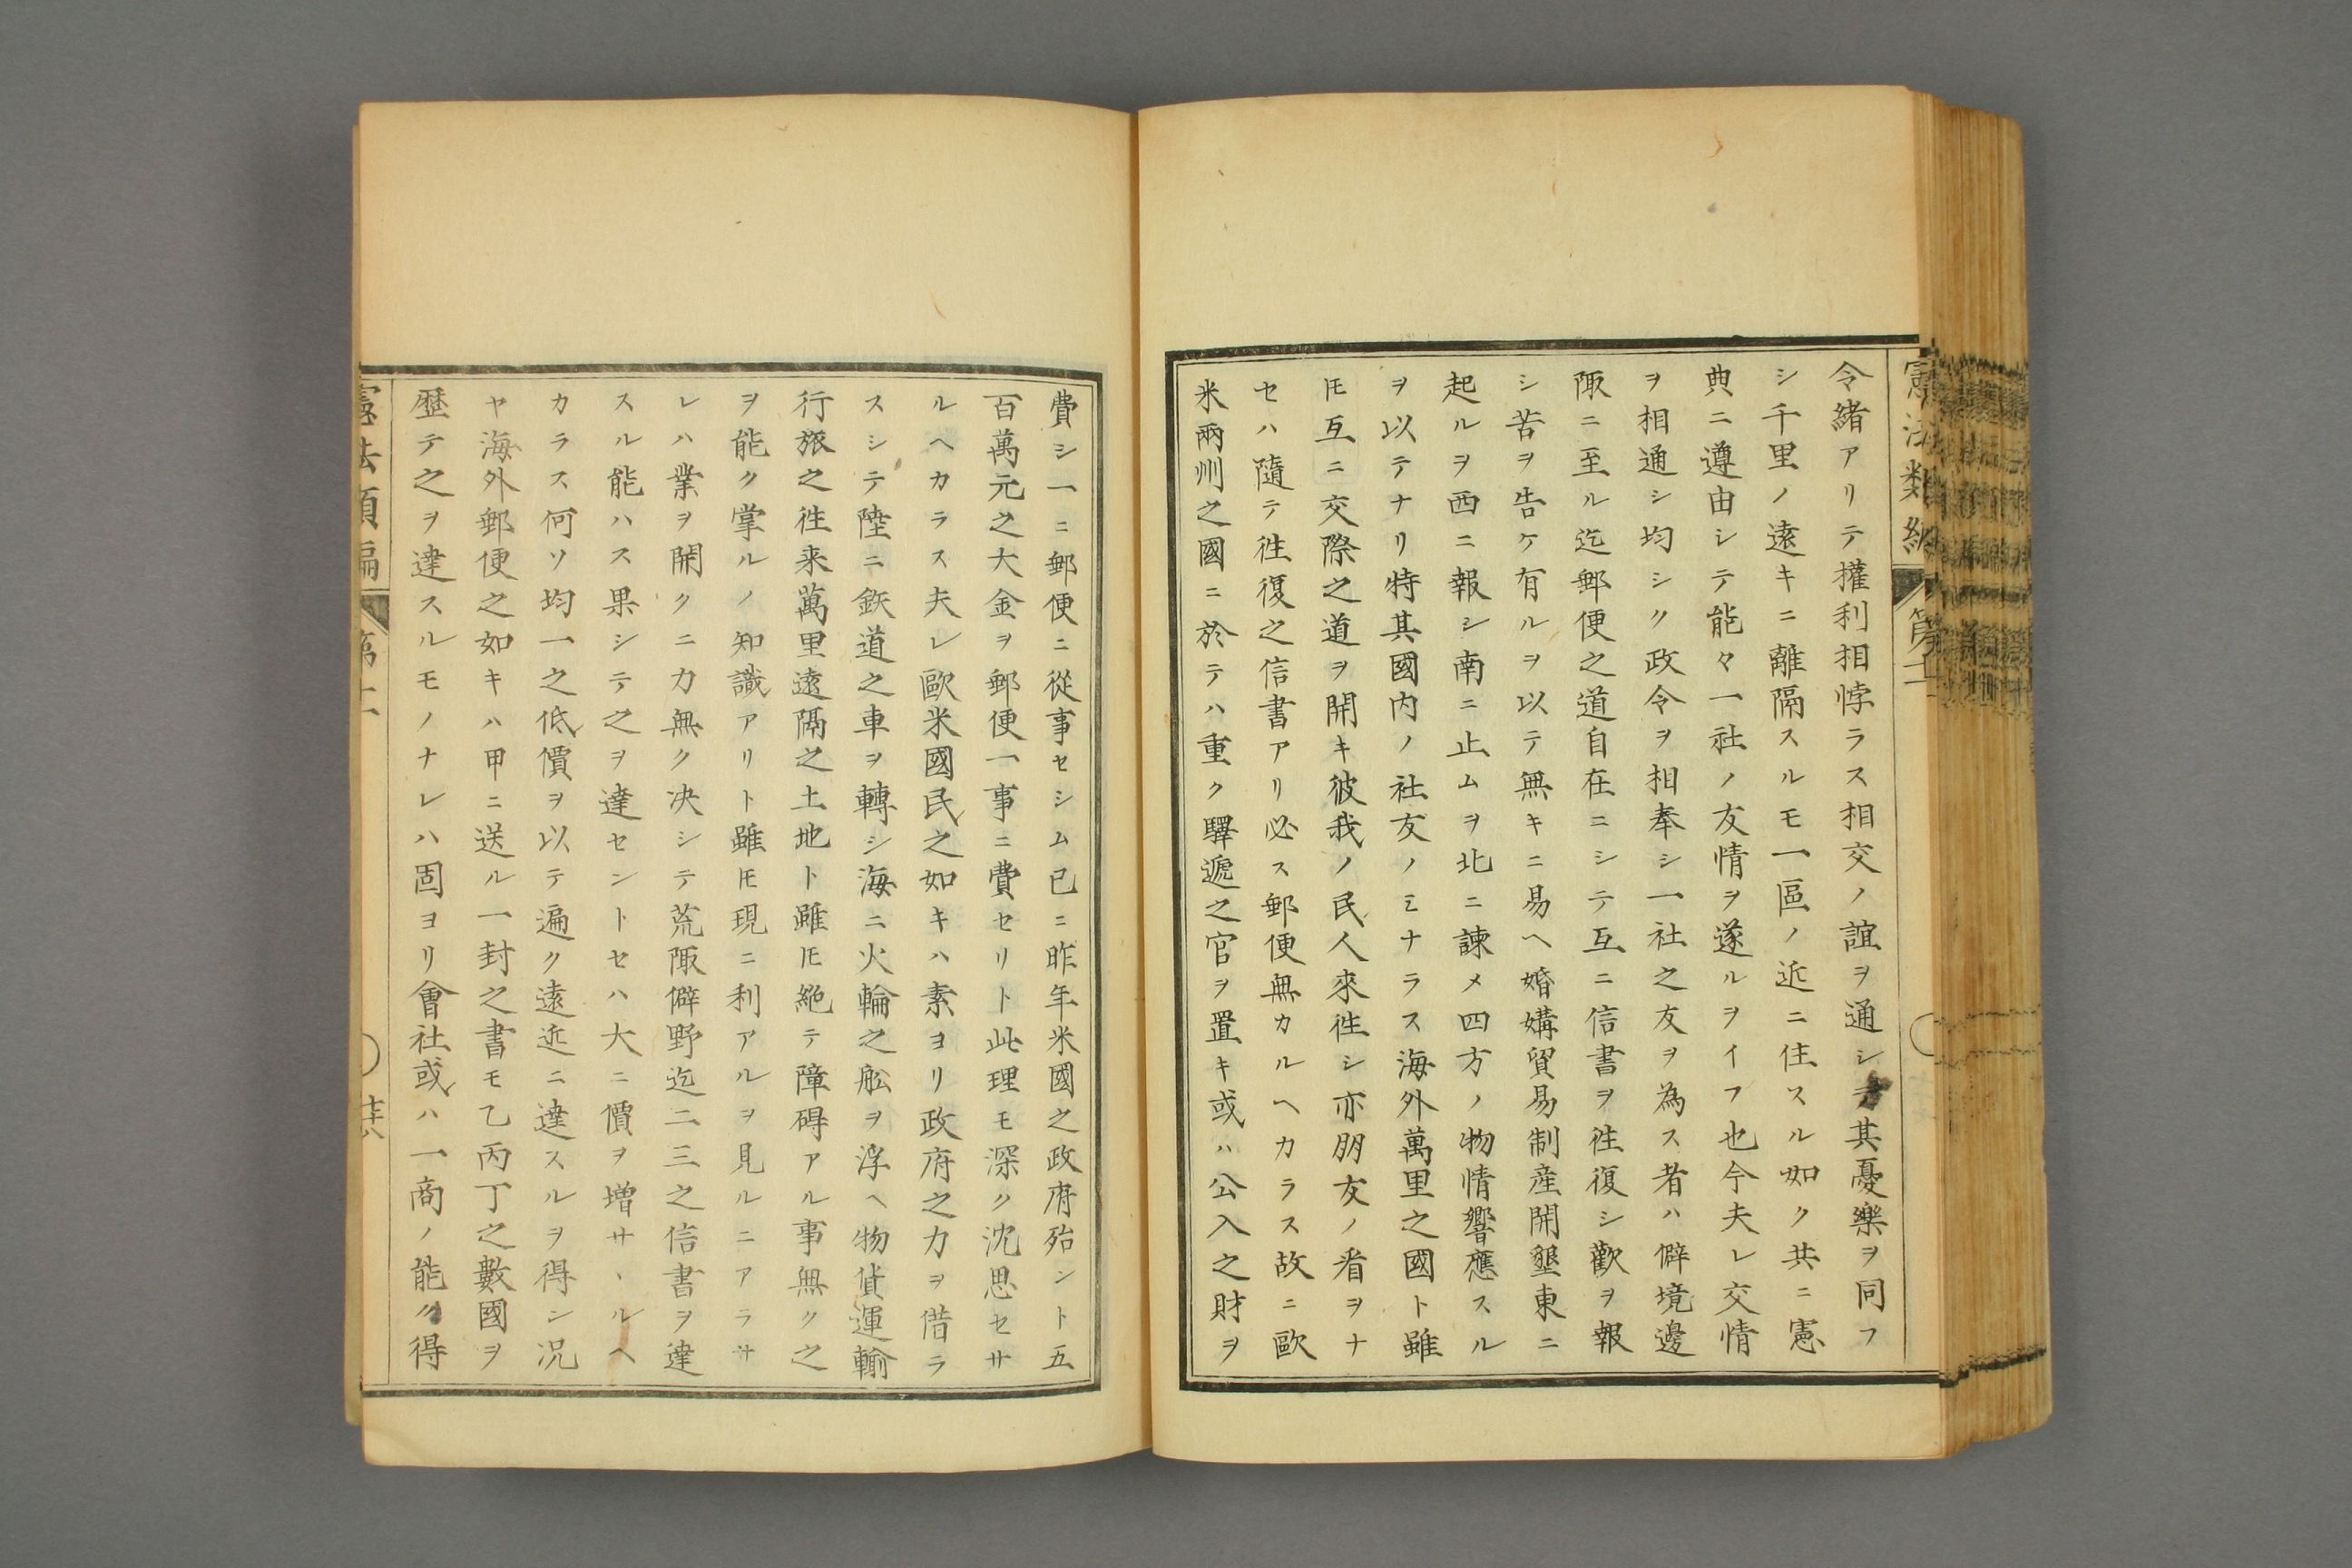 憲法類編
第十
令緒アリテ權利相悖ラス相交ノ誼ヲ通シテ其憂樂ヲ同フ
シ千里ノ遠キニ離隔スルモ一區ノ近ニ住スル如ク共ニ憲
典ニ遵由シテ能々一社ノ友情ヲ遂ルヲイフ也今夫レ交情
ヲ相通シ均シク政令ヲ相奉シ一社之友ヲ為ス者ハ僻境邊
陬ニ至ル迄郵便之道自在ニシテ互ニ信書ヲ徃復シ歡ヲ報
シ苦ヲ告ケ有ルヲ以テ無キニ易ヘ婚媾貿易制産開墾東ニ
起ルヲ西ニ報シ南ニ止ムヲ北ニ諫メ四方ノ物情響應スル
ヲ以テナリ特其國内ノ社友ノミナラス海外萬里之國ト雖
圧互ニ交際之道ヲ開キ彼我ノ民人來徃シ亦朋友ノ看ヲナ
セハ隨テ徃復之信書アリ必ス郵便無カルヘカラス故ニ歐
米兩州之國ニ於テハ重ク驛遞之官ヲ置キ或ハ公入之財ヲ
費シ一ニ郵便ニ從事セシム已ニ昨年米國之政府殆ント五
百萬元之大金ヲ郵便一事ニ費セリト此理モ深ク沈思セサ
ルヘカラス夫レ歐米國民之如キハ素ヨリ政府之力ヲ借ラ
スシテ陸ニ鉃道之車ヲ轉シ海ニ火輪之舩ヲ浮ヘ物貨運輸
行旅之徃来萬里遠隔之土地ト雖圧絶テ障碍アル事無ク之
ヲ能ク掌ルノ知識アリト雖圧現ニ利アルヲ見ルニアラサ
レハ業ヲ開クニ力無ク决シテ荒陬僻野迄二三之信書ヲ達
スル能ハス果シテ之ヲ達セントセハ大ニ價ヲ増サヽルヘ
カラス何ソ均一之低價ヲ以テ遍ク遠近ニ達スルヲ得ン况
ヤ海外郵便之如キハ甲ニ送ル一封之書モ乙丙丁之數國ヲ
歴テ之ヲ達スルモノナレハ固ヨリ會社或ハ一商ノ能ク得
憲法類編
第十